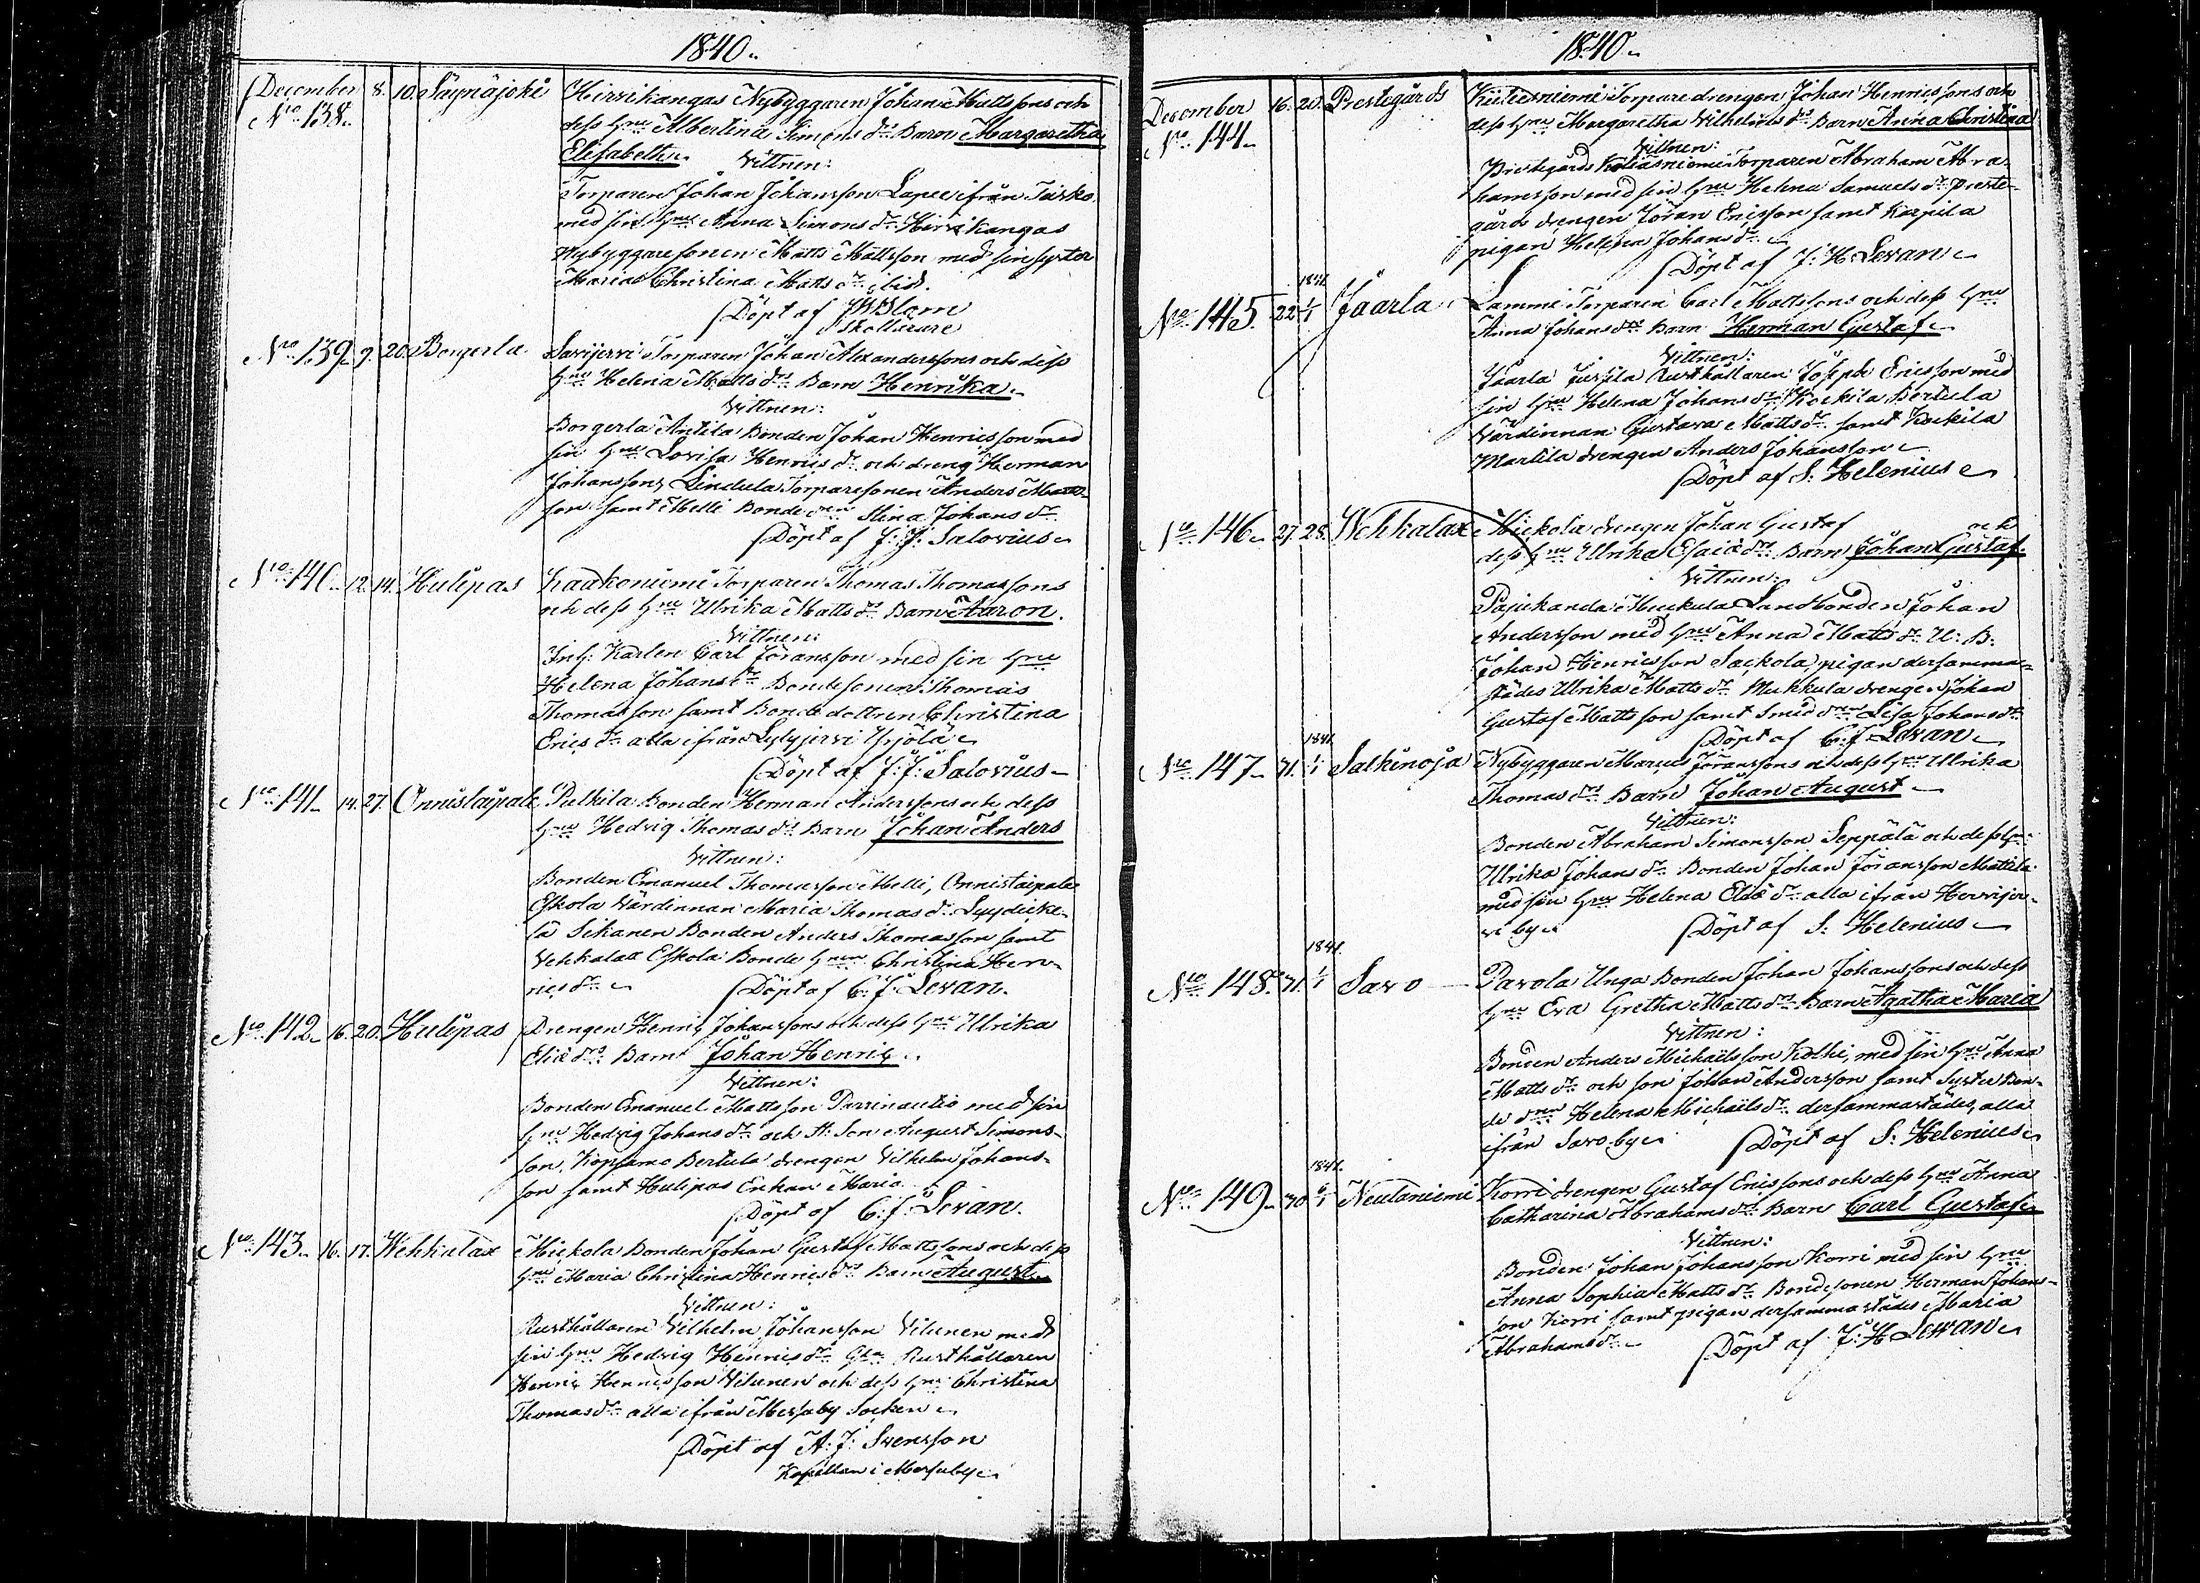 1840.
December 8. 10. Säynäjoki Hirsikangas Nybyggaren Johan Mattssons och
No 138. dess Hru Albertina Simons dr Barn Margaretha
Elisabeth.
Vittnen:
Torparen Johan Johansson ifrån
med sin Hru Anna Simons dr Hirsikangas
Nybyggaresonen Matts Mattsson med sin syster
Maria Christina Matts dr ibid.
Döpt af
Skollärare
No 139. 9. 20. Borgerla Savijervi Torparen Johan Alexanderssons och dess
Hru Helena Matts drs Barn Henrika.
Vittnen:
Borgerla Antila Bonden Johan Henricsson med
sin Hru Lovisa Henrics dr och dreng Herman
Johansson, Lindula Torparesonen Anders Matts-
son samt Melli Bonde Stina Johans dr
Döpt af J: J: Salovius
No 140. 12. 14. Hulipas Kaukoniemi Torparen Thomas Thomassons
och dess Hru Ulrika Matts drs Barn Aaron.
Vittnen:
Inh: Karlen Carl Jöransson med sin Hru
Helena Johans dr Bondesonen Thomas
Thomasson samt Bonde dottren Christina
Erics dr alla ifrån Yrjölä
Döpt af J: J: Salovius
No 141. 14. 27. Onnistaipale Pulkila Bonden Herman Anderssons och dess
Hru Hedvig Thomas drs Barn Johan Anders
Vittnen:
Bonden Emanuel Thomasson Melli, Onnistaipale
Eskola Värdinnan Maria Thomas dr
Sikanen Bonden Anders Thomasson samt
Vehkalax Eskola Bonde Hrun Christina Hen-
rics dr
Döpt af C: J: Levan.
No 142. 16. 20. Hulipas Drengen Henric Johanssons och dess Hru Ulrika
Eliæ drs Barn Johan Henric
Vittnen:
Bonden Emanuel Mattsson Perrinautio med sin
Hru Hedvig Johans dr och St: Son August Simons-
son, Köpsamo Bertula drengen Vilhelm Johans-
son samt Hulipas Enkan Maria
Döpt af C: J: Levan.
No 143. 16. 17. Wehkalax Mickola Bonden Johan Gustaf Mattssons och dess
Hru Maria Christina Henrics drs Barn August
Vittnen:
Rusthållaren Vilhelm Johansson Vilunen med
sin Hru Hedvig Henrics dr Gla Rusthållaren
Henric Henricsson Vilunen och dess Hru Christina
Thomas dr alla ifrån Messuby Socken
Döpt af A: J: Svensson
Kapellan i Messuby
1840.
December 16. 20. Prestegårds Torparedrengen Johan Henricssons och
No 144. dess Hru Margaretha Vilhelms drs Barn Anna Christina
Vittnen:
Prestegårds Torparen Abraham Abra-
hamsson med sin Hru Helena Samuels dr Preste-
gårds drengen Jöran Ericsson samt Karpila
pigan Helena Johans dr
Döpt af J: H: Levan
1841.
No 145. 22. 1/1 Jaarla Lammi Torparen Carl Mattssons och dess Hru
Anna Johans drs Barn Herman Gustaf
Vittnen:
Jaarla Jussila Rusthållaren Joseph Ericsson med
sin Hru Helena Johans dr, Kockila Bertula
Värdinnan Gustava Matts dr samt Kockila
Martila drengen Anders Johansson
Döpt af S: Helenius
No 146. 27. 28. Wehkalax Mickola drengen Johan Gustaf och
dess Hru Ulrika Esaiæ drs Barn Johan Gustaf.
Vittnen:
Pajukanda Muckula Landbonden Johan
Andersson med Hru Anna Matts dr U: B:
Johan Henricsson Sackola, pigan dersamma-
städes Ulrika Matts dr Mukkula drengen Johan
Gustaf Mattsson samt Smid dren Lisa Johans dr
Döpt af C: J: Levan
1841.
No 147. 31. 1/1 Salkinoja Nybyggaren Marcus Jöranssons och dess Hru Ulrika
Thomas drs Barn Johan August
Vittnen:
Bonden Abraham Simonsson Seppälä och dess Hru
Ulrika Johans dr Bonden Johan Jöransson Mattila
med sin Hru Helena Eliæ dr alla ifrån Hervijer-
vi by
Döpt af S: Helenius
1841.
No 148. 31. 1/1 Savo Pavola Unga Bonden Johan Johanssons och dess
Hru Eva Gretha Matts drs Barn Agatha Maria
Vittnen:
Bonden Anders Michaelsson Kolhi, med sin Hru Anna
Matts dr och son Johan Andersson samt Syster Bon-
de dren Helena Michaels dr dersammastädes, alla
ifrån Savo by
Döpt af S: Helenius
1841.
No 149. 30. 6/1 Neulaniemi Korri drengen Gustaf Ericssons och dess Hru Anna
Catharina Abrahams drs Barn Carl Gustaf
Vittnen:
Bonden Johan Johansson Korri med sin Hru
Anna Sophia Matts dr Bondesonen Herman Johans-
son Korri samt pigan dersammastädes Maria
Abrahams dr
Döpt af J: H: Levan